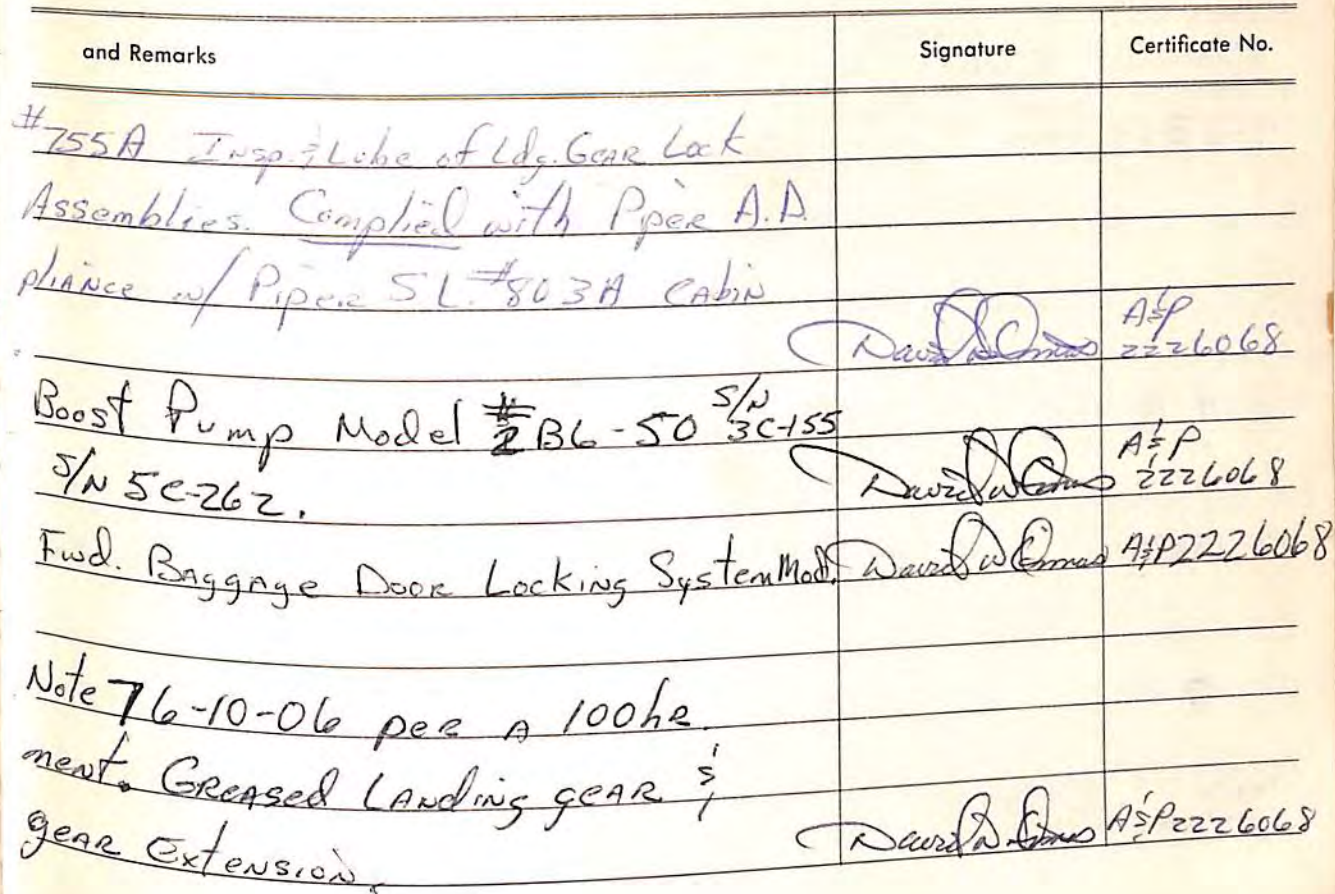 and Remarks Signature Certificate No.
#755A Insp. & Lube of Ldg. Gear Lock
Assemblies. Complied with Piper A.D.
pliance w/ Piper S.L. #803A Cabin
A&P
David W. 2226068
Boost Pump Model #2B6-50 S/N 3C-155
A&P
S/N 5C-262. David W. 2226068
Fwd. Baggage Door Locking System Mod. David W. A&P2226068
Note 76-10-06 per A 100hr.
ment. Greased Landing gear &
gear Extension. David W. A&P2226068